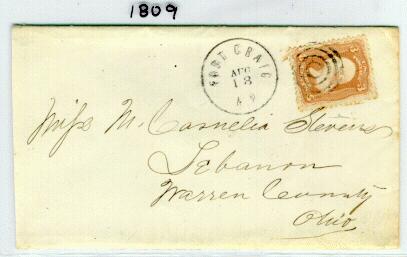 1809
FORT CRAIG
AUG
13
Miss M. Cornelia Stevens
Lebanon
Warren County
Ohio